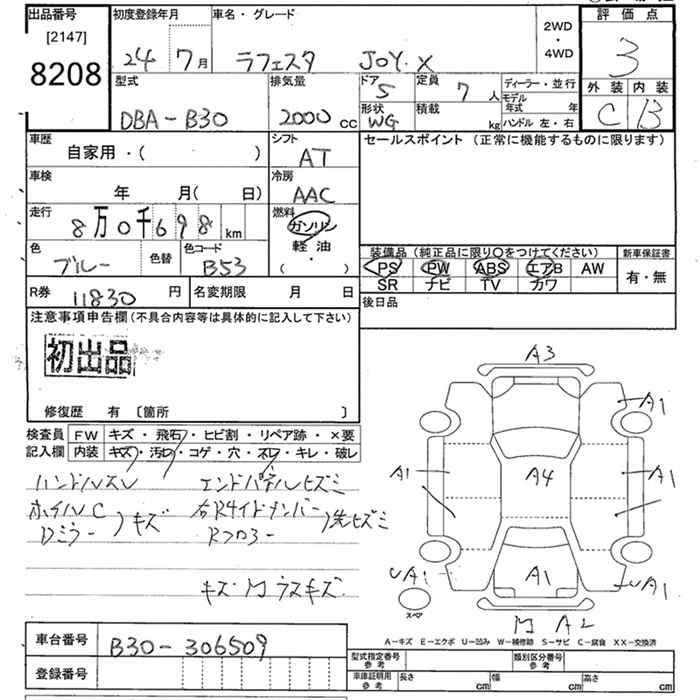 出品番号 初度登録年月 車名・グレード 評価点
[2147] 2WD・4WD
8208 24 7月 ラフェスタ JOY.X 3
型式 排気量 ドア 定員 ディーラー・並行 外装 内装
DBA-B30 2000cc 5 7人 モデル年式 年 C B
形状 積載 ハンドル 左・右
WG kg
車歴 シフト セールスポイント (正常に機能するものに限ります)
自家用・( ) AT
車検 冷房
年 月( 日) AAC
走行 燃料
8万0千698km ガソリン
軽油
・
( )
色 色替 色コード 装備品(純正品に限り○をつけてください) 新車保証書
ブルー B53 PS PW ABS エアB AW 有・無
SR ナビ TV カワ
R券 11830円 名変期限 月 日 後日品
注意事項申告欄(不具合内容等は具体的に記入して下さい)
初出品
A3
修復歴 有 〔箇所 〕
A1
検査員 FW キズ・飛石・ヒビ割・リペア跡・×要
記入欄 内装 キズ・汚レ・コゲ・穴・スレ・キレ・破レ
A1 A4 A1
ハンドルスレ エンドパネルヒズミ
ホイルC 右Rサイドメンバー
Dミラー キズ Rフロアー 先ヒズミ
UA1 A1 UA1
キズ・ ラスキズ
スペア
A2
A-キズ E-エクボ U-凹み W-補修跡 S-サビ C-腐食 XX-交換済
車台番号 B30-306509
型式指定番号 参考 類別区分番号 参考
登録番号 車庫証明用 参考 長さ cm 幅 cm 高さ cm